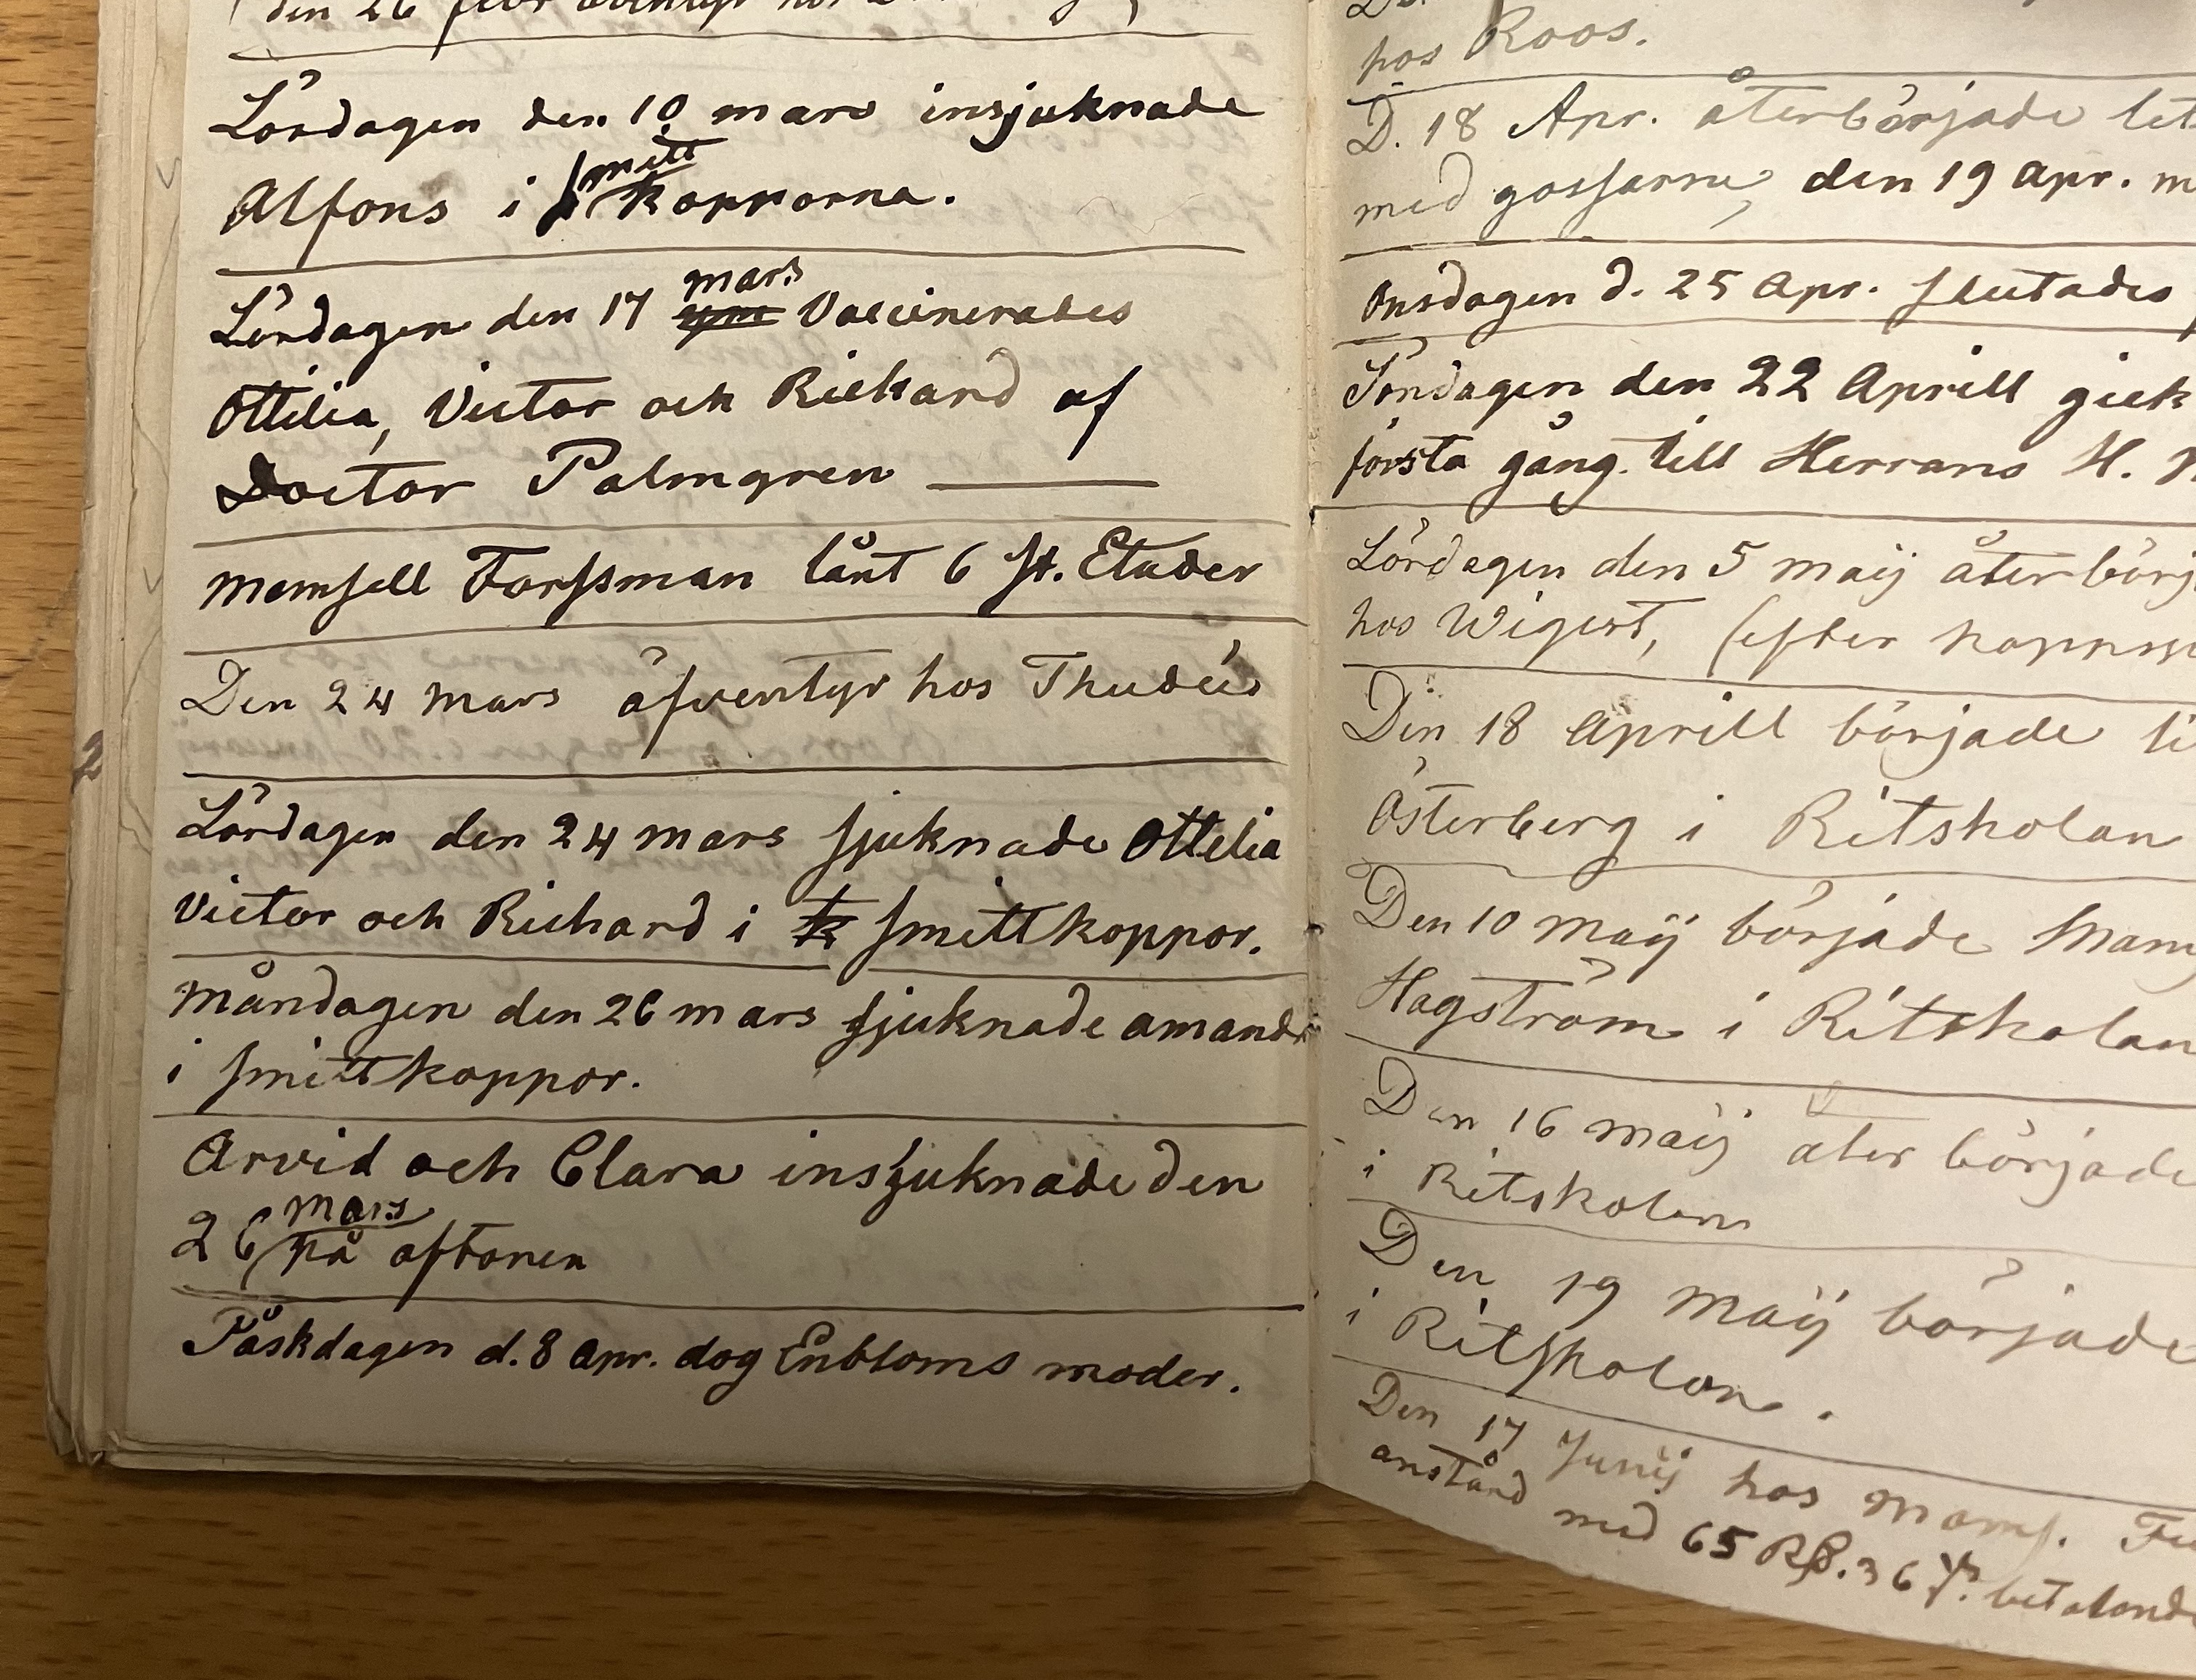 den 26 febr
Lördagen den 10 mars insjuknade
mitt
Alfons i kopporna.
mars
Lördagen den 17 Vaccinerades
Ottilia, Victor och Rickard af
Doctor Palmgren
Memsell Forssman lånt 6 st. Etuder
Den 24 mars äfventyr hos Thudéns
Lördagen den 24 mars sjuknade Ottelia
Victor och Richard i smittkoppor.
Måndagen den 26 mars sjuknade amand
i smittkoppor.
Arvid och Clara insjuknade den
mars
26 på aftonen
Påskdagen d. 8 apr. dog Enbloms moder.
2
hos Roos.
D. 18 Apr. återbörjade
med gossarne, den 19 apr.
Onsdagen d. 25 Apr. slutades
Söndagen den 22 Aprill gick
första gång till Herrans H.
Lördagen den 5 maij återbörj
hos Wigert, (efter
Den 18 Aprill började
Österberg i Ritskolan
Den 10 maij började Mam
Hagström i Ritskolan
Den 16 maij åter började
i Ritskolan
Den 19 Maij började
i Ritskolan.
Den 17 Junij hos mams.
anstånd med 65 R 36 betalande